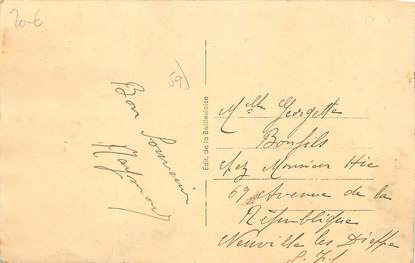 20 €
59
Bon Souvenir
Raymond
Edit. de la Bailleuloise
Mlle Georgette
Bonfils
chez Monsieur Hie
69 Avenue de la
République
Neuville les Dieppe
S. Inf